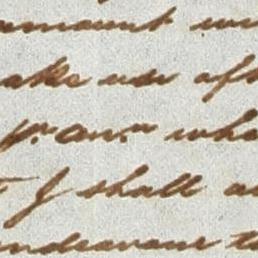 amount
ake use of
pr. ann. wha
I shall
endeavour t